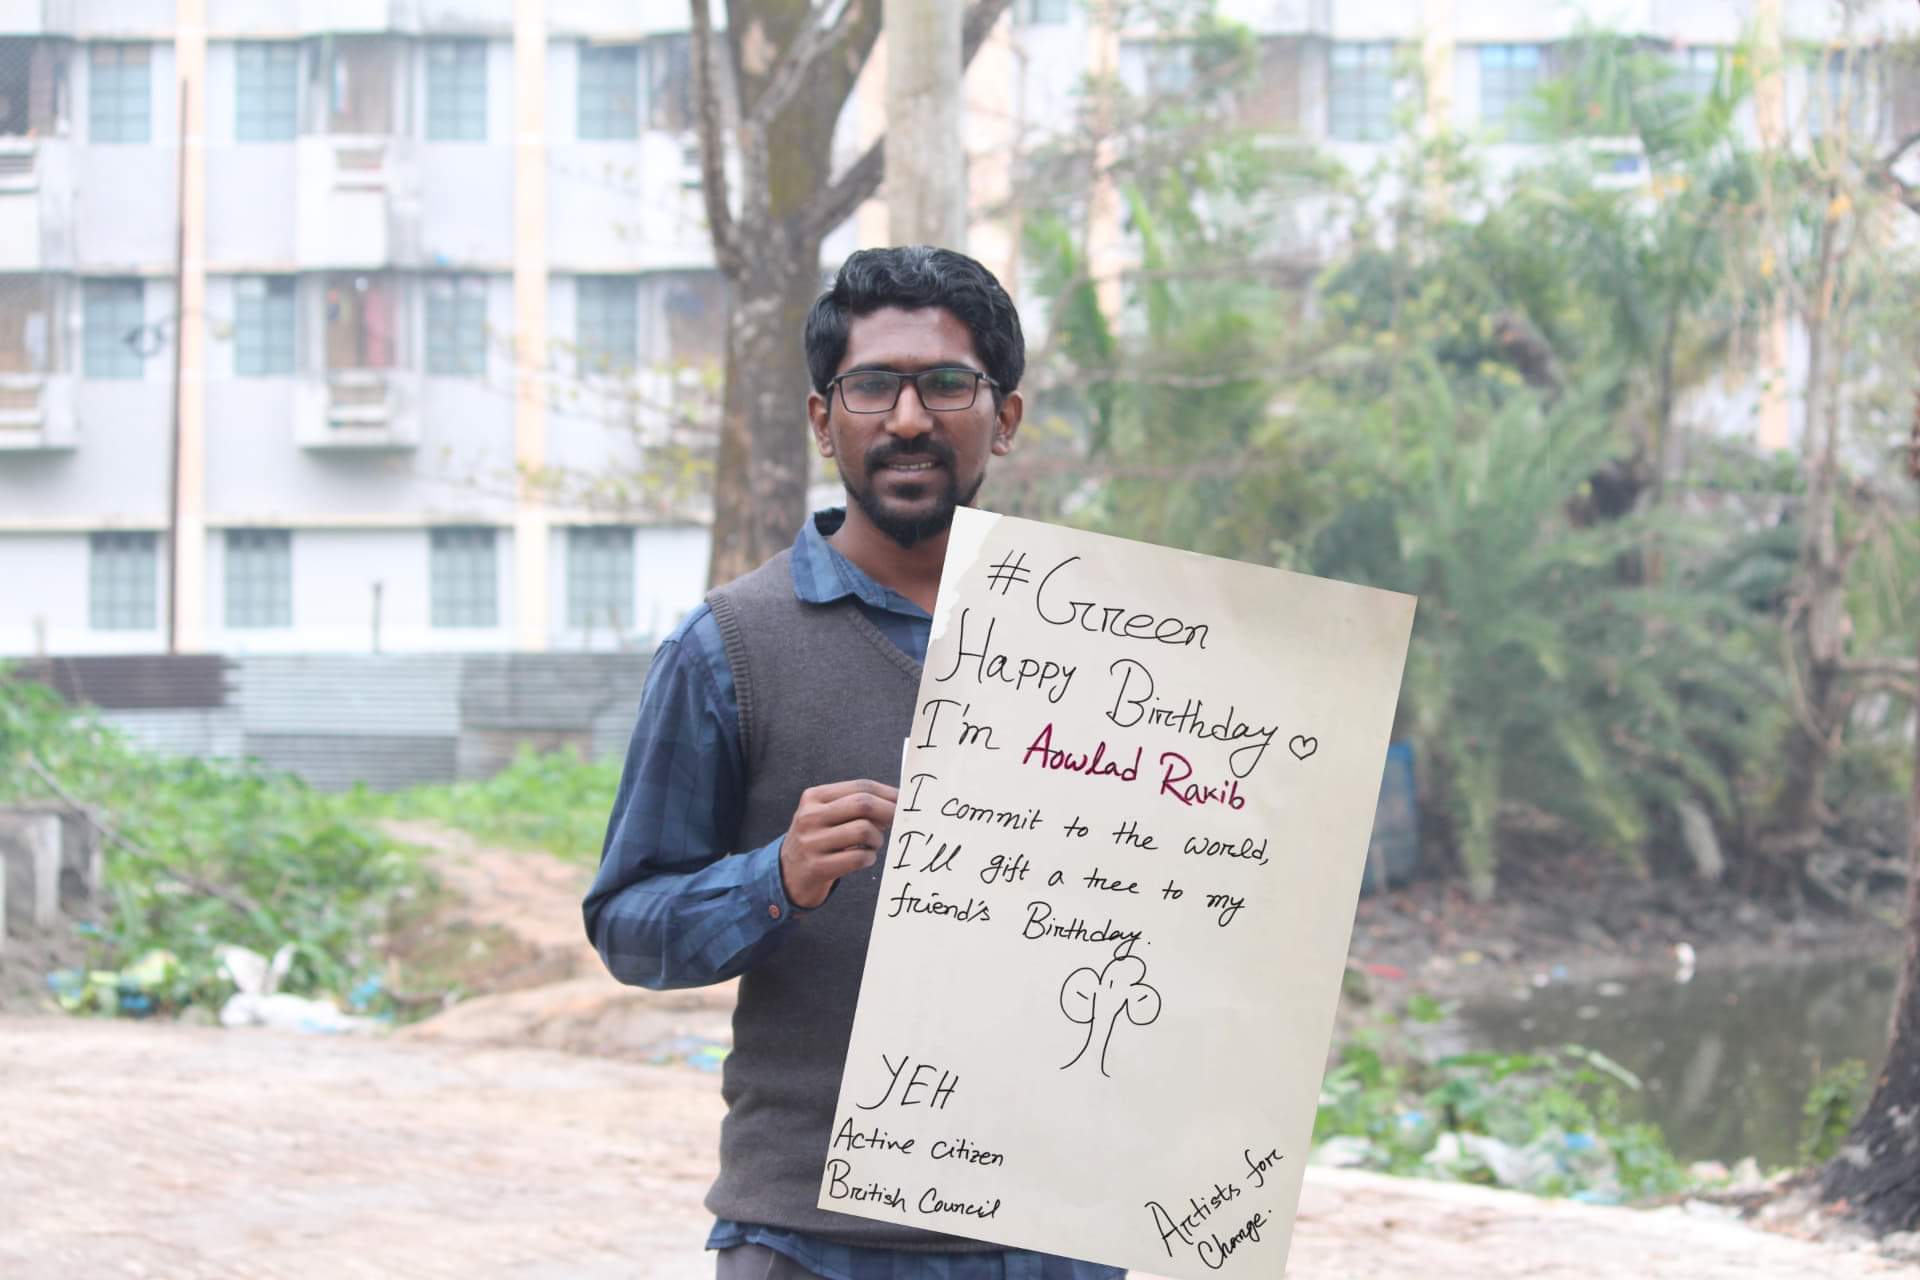 #Green
Happy Birthday ♡
I'm Aowlad Rakib
I commit to the world,
I'll gift a tree to my
friend's Birthday.
YEH
Active citizen
British Council
Artists for
Change.